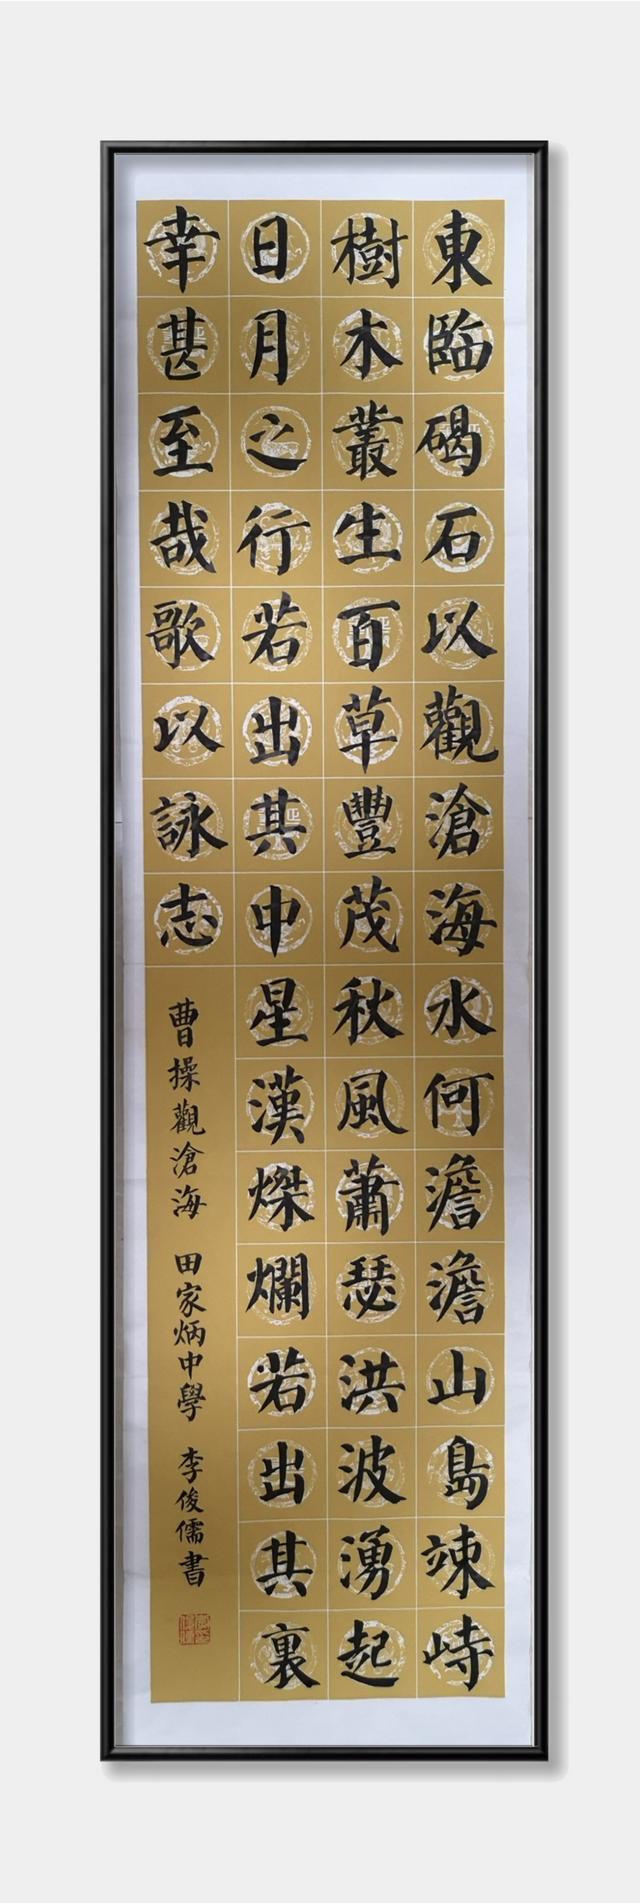 東臨碣石以觀滄海水何澹澹山島竦峙
樹木叢生百草豐茂秋風蕭瑟洪波湧起
日月之行若出其中星漢燦爛若出其裏
幸甚至哉歌以詠志
曹操觀滄海 田家炳中學 李俊儒書